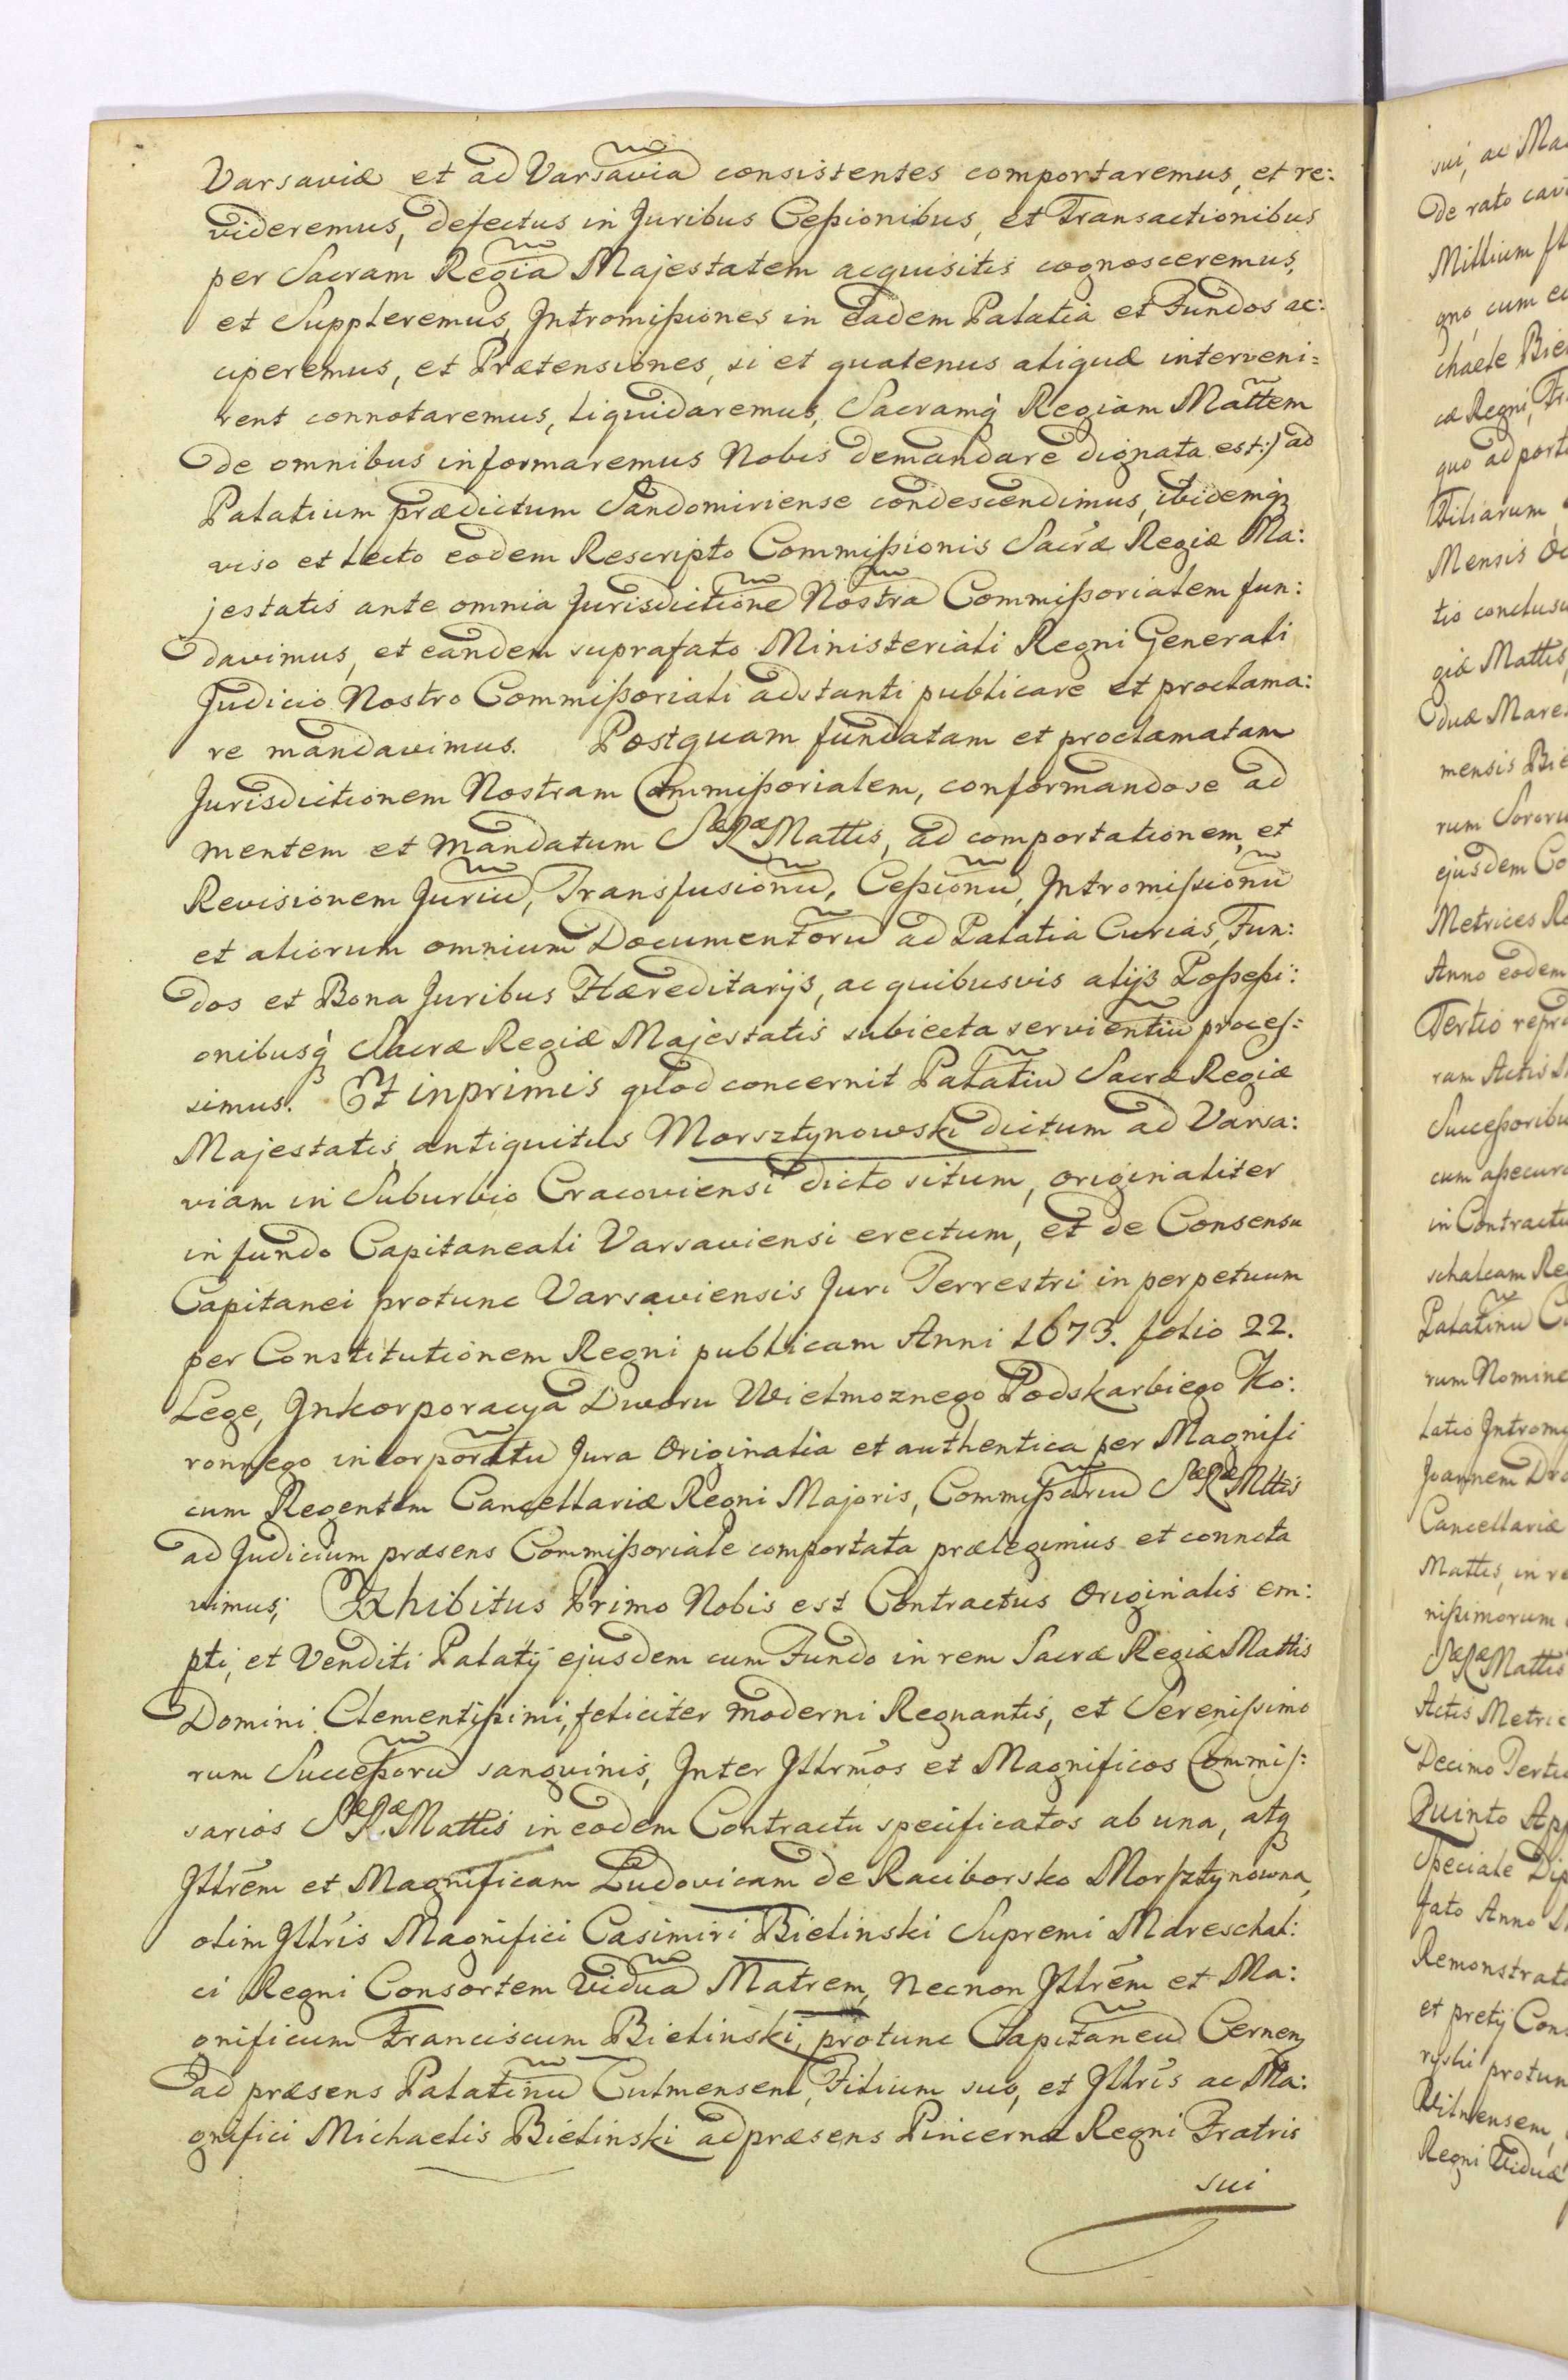 Varsaviæ et ad Varsavia͠ consistentes comportaremus, et re:
videremus, defectus in Juribus Ceßionibus, et Transactionibus
per Sacram Regia͠ Majestatem acquisitis cognosceremus,
et Suppleremus, Intromißiones in eadem Palatia et Fundos ac:
ciperemus, et Prætensiones, si et quatenus aliquæ interveni=
rent connotaremus, liquidaremus, Sacramq́ Regiam Matt͠em
de omnibus informaremus Nobis demandare dignata est:) ad
Palatium prædictum Sandomiriense condescendimus, ibidemq́
viso et lecto eodem Rescripto Commißionis Sacræ Regiæ Ma:
jestatis ante omnia Jurisdictione͠ Nostra͠ Commißorialem fun:
davimus, et eandem suprafato Ministeriali Regni Generali
Judicio Nostro Commißoriali adstanti publicare et proclama:
re mandavimus. Postquam fundatam et proclamatam
Jurisdictionem Nostram Commißorialem, conformandose ad
mentem et mandatum SæRæ Mattis, ad comportationem, et
Revisionem Juriu͠, Transfusionu͠, Ceßionu͠, Intromißionu͠
et aliorum omnium Documentoru͠ ad Palatia Curias, Fun:
dos et Bona Juribus Hæreditarijs, ac quibusvis alijs Poßeßi:
onibusq́ Sacræ Regiæ Majestatis subiecta servientiu͠ proces:
simus. Et inprimis quod concernit Palatiu͠ Sacræ Regiæ
Majestatis, antiquitus Morsztynowski dictum ad Varsa:
viam in Suburbio Cracoviensi dicto situm, originaliter
in fundo Capitaneali Varsaviensi erectum, et de Consensu
Capitanei protunc Varsaviensis Juri Terrestri in perpetuum
per Constitutionem Regni publicam Anni 1673. folio 22.
Lege, Inkorporacya Dworu Wielmoznego Podskarbiego Ko:
ronnego incorporatu͠ Jura Originalia et authentica per Magnifi
cum Regentem Cancellariæ Regni Majoris, Commißariu͠ SæRæ Mttis
ad Judicium præsens Commißoriale comportata prælegimus et connota
vimus; Exhibitus Primo Nobis est Contractus Originalis em:
pti, et Venditi Palatij ejusdem cum Fundo in rem Sacræ Regiæ Mattis
Domini Clementißimi, feliciter moderni Regnantis, et Serenißimo
rum Succeßoru͠ sanguinis, Inter Illrm̃os et Magnificos Commis:
sarios SæRæ Mattis in eodem Contractu specificatos ab una, atq́
Illrẽm et Magnificam Ludovicam de Raciborsko Morsztynowna,
olim Illrĩs Magnifici Casimiri Bielinski Supremi Mareschal:
ci Regni Consortem Vidua͠ Matrem, Necnon Illrẽm et Ma:
gnificum Franciscum Bielinski, protunc Capitaneu͠ Cernen,
ad præsens Palatinu͠ Culmensem, Filium suũ, et Illrĩs ac Ma:
gnifici Michaelis Bielinski ad præsens Pincernæ Regni Fratris
sui
sui, ac Ma
de rato cav
Millium
gno, cum
chaele Bie
cæ Regni,
quo ad port
Filiarum
Mensis
tio conclus
giæ Mattis,
duæ Mare
mensis Bie
rum Soror
ejusdem Co
Metrices Re
Anno eodem
Tertio repr
ram Actis
Succeßoribu
cum aßecur
in Contractu
schalcam Re
Palatinu͠
rum Nomine
latio Introm
Joannem Dr
Cancellariæ
Mattis, in re
nißimorum
SæRæ Mattis
Actis Metric
Decimo Tertio
Quinto
Speciale Dip
fato Anno
Remonstrat
et pretij Con
protun
Vilnensem,
Regni Viduæ